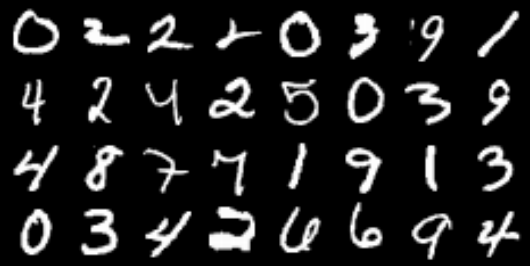 0 2 2 2 0 3 9 1
4 2 4 2 5 0 3 9
4 8 7 7 1 9 1 3
0 3 4 2 6 6 9 4